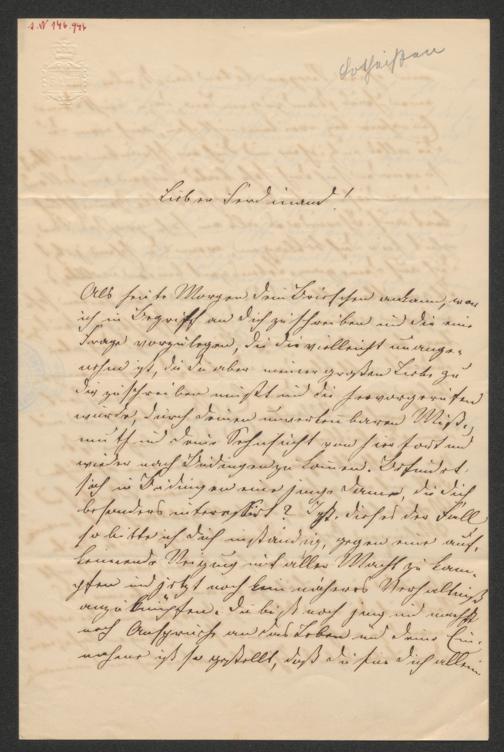 I.N 146.946
Lotheißen
Lieber Ferdinand!
Als heute Morgen dein Briefchen ankam, war
ich in Begriff an dich zu schreiben und dir eine
Frage vorzulegen, die dir vielleicht unange-
nehm ist, die du aber meiner großen Liebe zu
dir zuschreiben mußt und die hervorgerufen
wurde, durch deinen unverkennbaren Miß-
muth und deine Sehnsucht von hier fort und
wieder nach Büdingen zu kommen. Befindet
sich in Büdingen eine junge Dame, die dich
besonders interessirt? Ist dieses der Fall
so bitte ich dich inständig, gegen eine auf-
keimende Neigung mit aller Macht zu käm-
pfen und jetzt noch kein näheres Verhältniß
anzuknüpfen. Du bist noch jung und machst
noch Ansprüche an das Leben und deine Ein-
nahme ist so gestellt, daß du für dich allein